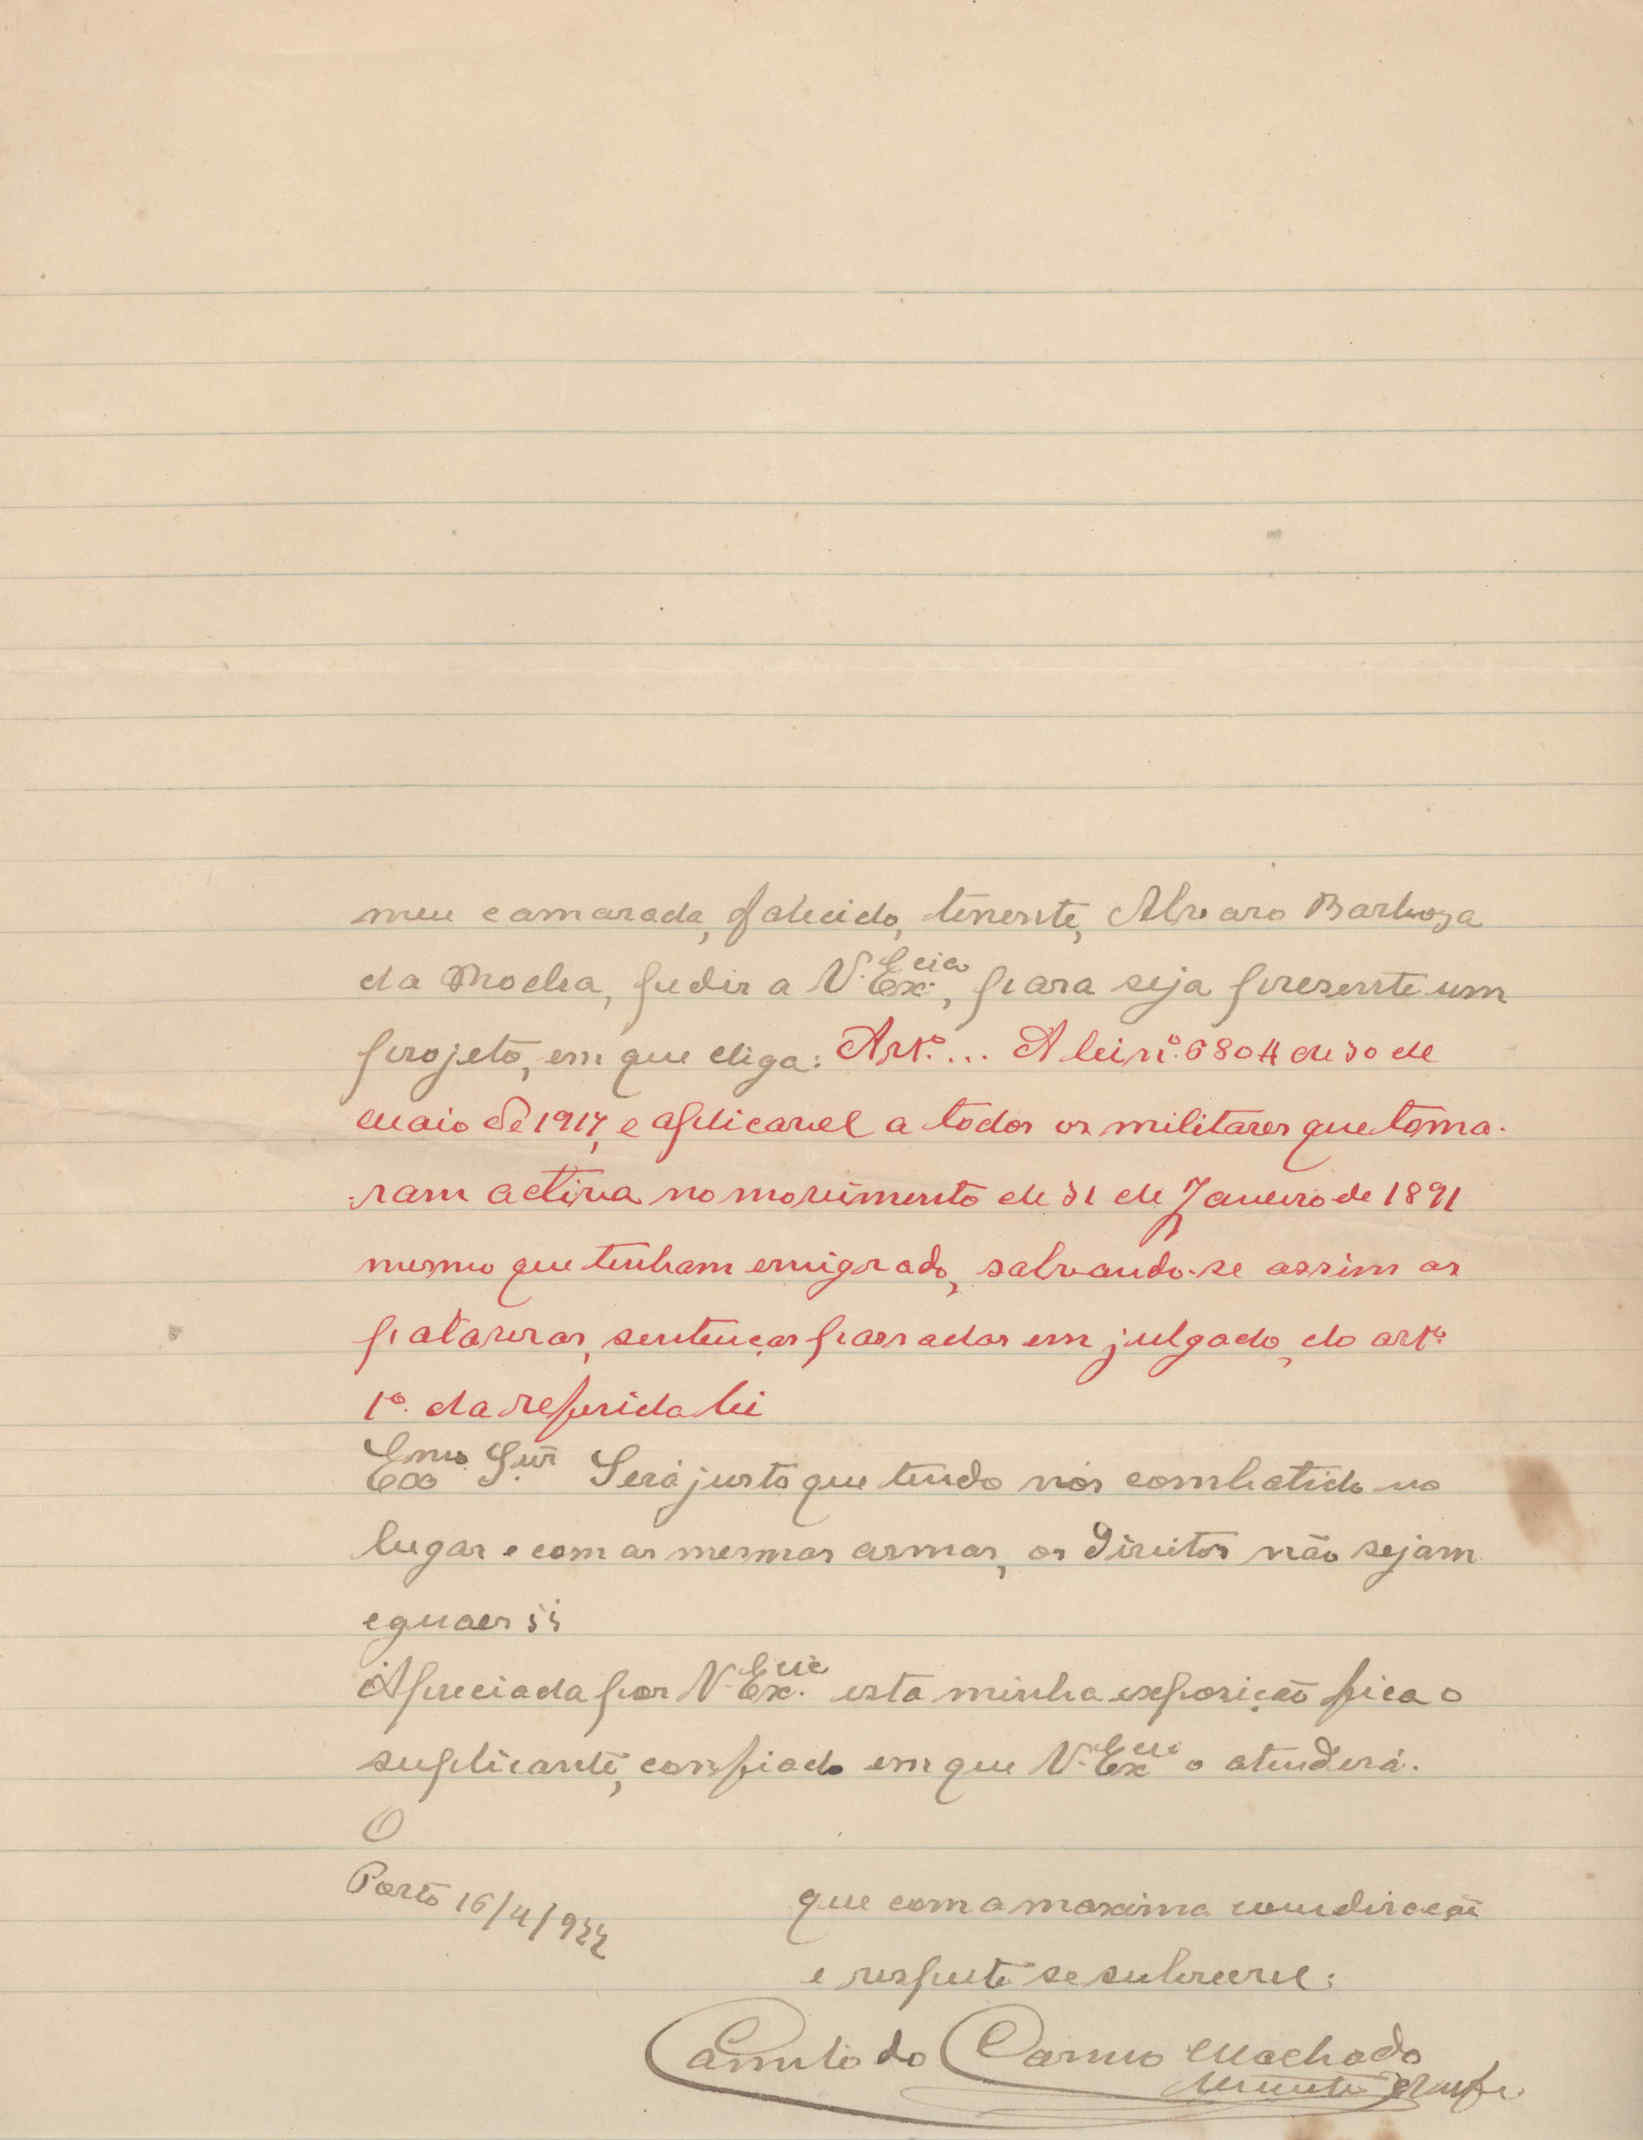 meu camarada, falecido, tenente, Alvaro Barboza
da Rocha, pedir a V. Ex.cia, para seja presente um
projeto, em que diga: Art.º... A lei n.º 6804 de 30 de
Maio de 1917, e aplicavel a todos os militares que toma-
ram activa no movimento de 31 de Janeiro de 1891
mesmo que tenham emigrado, salvando-se assim as
palavras, sentenças passadas em julgado, do art.º
1º. da referida lei
Exmo. Snr. Será justo que tendo nós combatido no
lugar e com as mesmas armas, os direitos não sejam
eguaes ??
Apreciada por V. Ex.cia esta minha exposição fica o
suplicante, confiado em que V. Ex.cia o atenderá.
O
Porto 16/4/922
que com a maxima
e respeito se subscreve:
Camilo do Carmo Machado